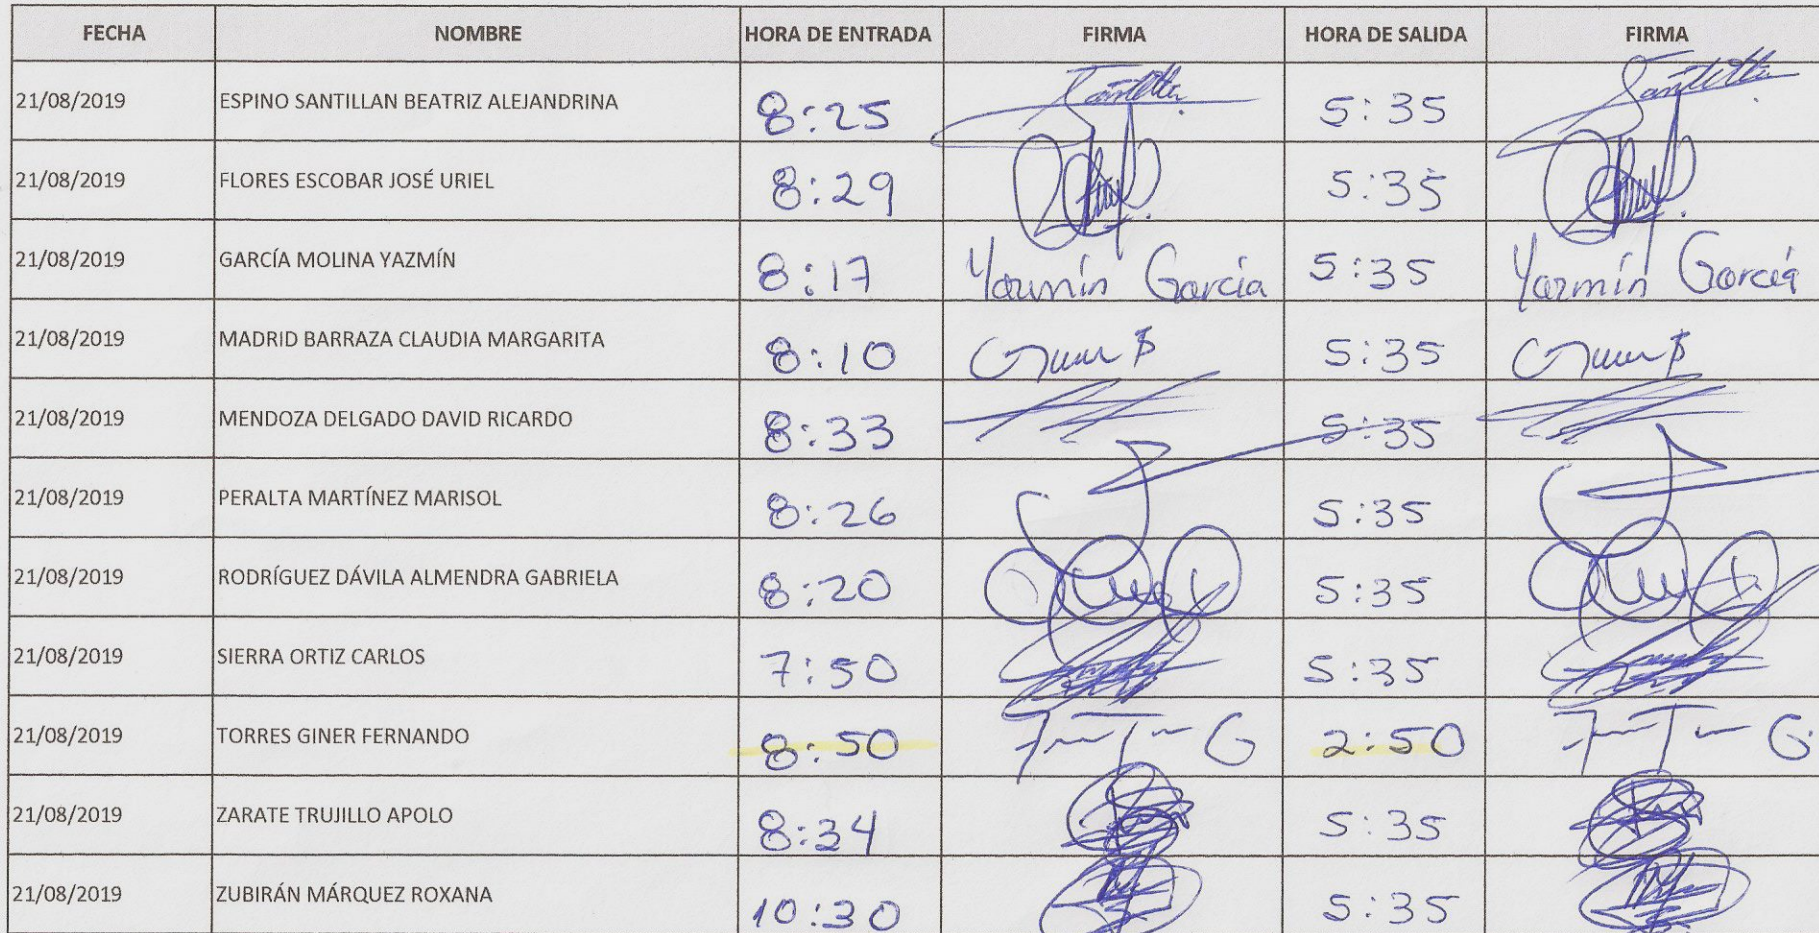 FECHA NOMBRE HORA DE ENTRADA FIRMA HORA DE SALIDA FIRMA
21/08/2019 ESPINO SANTILLAN BEATRIZ ALEJANDRINA 8:25 5:35
21/08/2019 FLORES ESCOBAR JOSÉ URIEL 8:29 5:35
21/08/2019 GARCÍA MOLINA YAZMÍN 8:17 Yazmín García 5:35 Yazmín García
21/08/2019 MADRID BARRAZA CLAUDIA MARGARITA 8:10 5:35
21/08/2019 MENDOZA DELGADO DAVID RICARDO 8:33 5:35
21/08/2019 PERALTA MARTÍNEZ MARISOL 8:26 5:35
21/08/2019 RODRÍGUEZ DÁVILA ALMENDRA GABRIELA 8:20 5:35
21/08/2019 SIERRA ORTIZ CARLOS 7:50 5:35
21/08/2019 TORRES GINER FERNANDO 8:50 2:50
21/08/2019 ZARATE TRUJILLO APOLO 8:34 5:35
21/08/2019 ZUBIRÁN MÁRQUEZ ROXANA 10:30 5:35